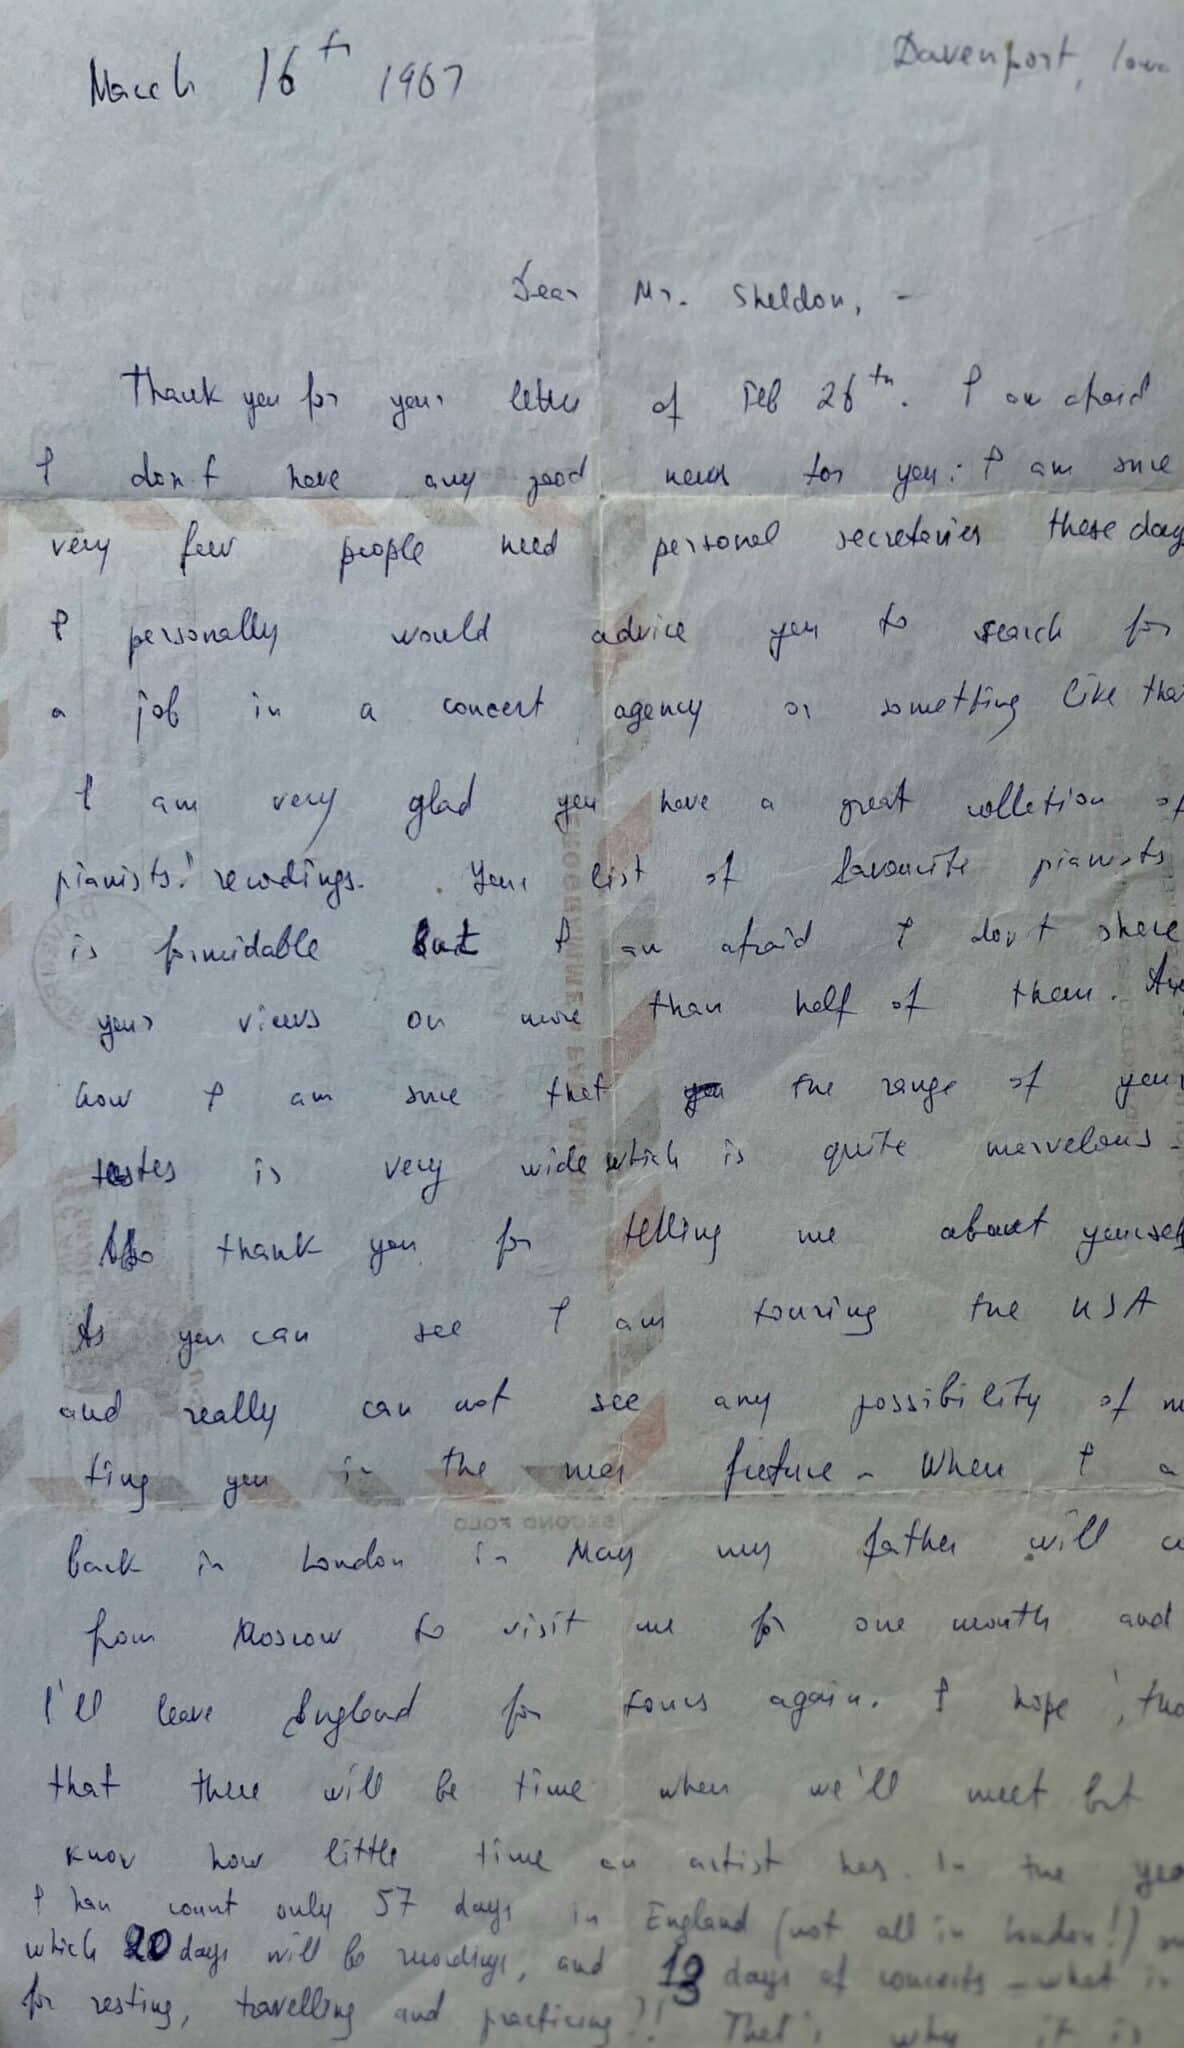 March 16th 1967
Davenport, Iowa
Dear Mr. Sheldon, -
Thank you for your letter of Feb 26th. I am afraid
I don't have any good news for you: I am sure
very few people need personal secretaries these days
I personally would advice you to search for
a job in a concert agency or something like that
I am very glad you have a great colletion of
pianists' recordings. Your list of favourite pianists
is formidable but I am afraid I don't share
your views on more than half of them. Any
how I am sure that the range of your
tastes is very wide which is quite marvelous -
Also thank you for telling me about yourself
As you can see I am touring the USA
and really can not see any possibility of
ting you in the near future - When I
back in London in May my father will
from Moscow to visit me for one month and
I'll leave England for tours again. I hope, tho
that there will be time when we'll meet but
know how little time an artist has. In the
I can count only 57 days in England (not all in London!)
which 20 days will be recordings, and 13 days of concerts - what is
for resting, travelling and practicing?!! That's why it is
SECOND FOLD